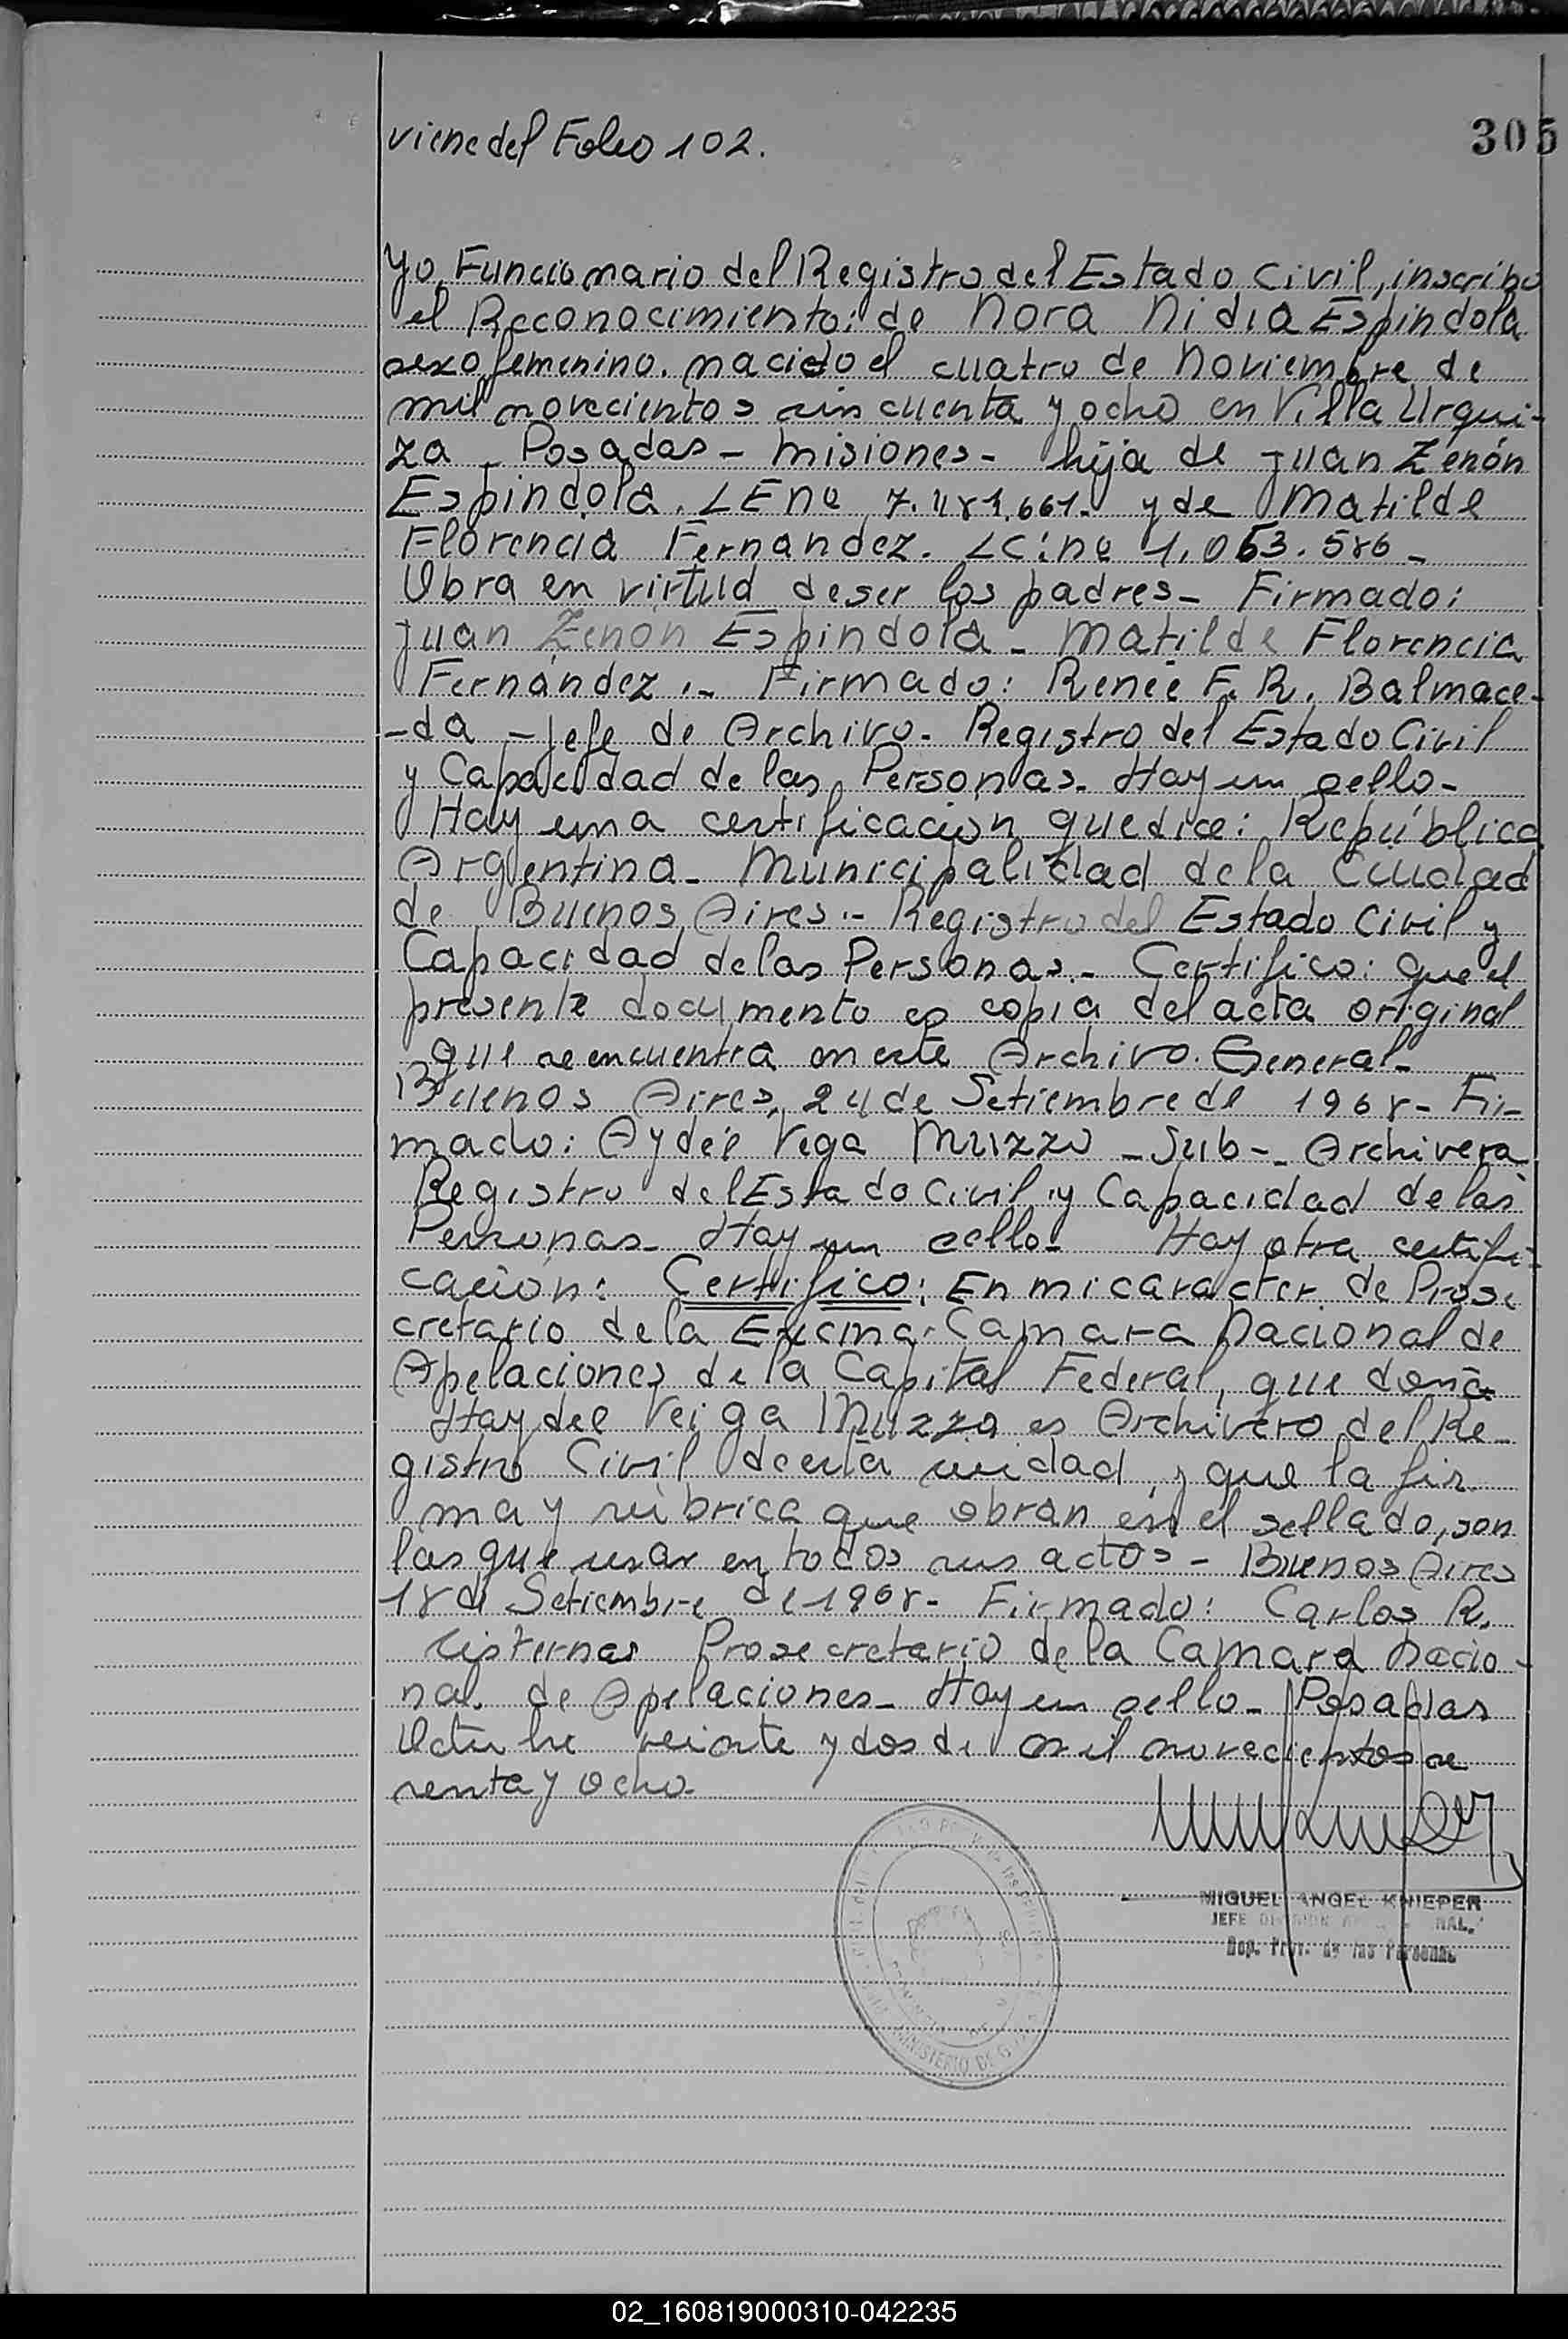 viene del Folio 102.
305
Yo, Funcionario del Registro del Estado Civil, inscribo
el Reconocimiento: de Nora Nidia Espindola
sexo femenino. nacido el cuatro de Noviembre de
mil novecientos cincuenta y ocho en Villa Urqui-
za - Posadas - Misiones - hija de Juan Zenón
Espindola. LE no 7.481.661. y de Matilde
Florencia Fernandez. LC: no 1.063.586 -
Obra en virtud de ser los padres - Firmado:
Juan Zenon Espindola - Matilde Florencia
Fernández .- Firmado: Renée F. R. Balmace-
-da - Jefe de Archivo - Registro del Estado Civil
y Capacidad de las Personas - Hay un sello -
Hay una certificación que dice: República
Argentina - Municipalidad de la Ciudad
de Buenos Aires .- Registro del Estado Civil y
Capacidad de las Personas - Certifico: que el
presente documento es copia del acta original
que se encuentra en este Archivo General -
Buenos Aires, 24 de Setiembre de 1968 - Fir-
mado: Aydeé Vega Muzzo - Sub - Archivera
Registro del Estado Civil y Capacidad de las
Personas - Hay un sello - Hay otra certifi-
cación: Certifico: En mi caracter de Prose
cretario de la Excma. Camara Nacional de
Apelaciones de la Capital Federal, que doña
Haydee Veiga Muzzo es Archivero del Re-
gistro Civil de esta ciudad, y que la fir
ma y rúbrica que obran en el sellado, son
las que usar en todos sus actos - Buenos Aires
18 de Setiembre de 1968 - Firmado: Carlos R.
Cisternas Prosecretario de la Camara Nacio-
nal de Apelaciones - Hay un sello - Posadas
Octubre veinte y dos de mil novecientos se
senta y ocho.
MIGUEL ANGEL KNIEPER
JEFE
Dep. Prov. de las Personas
MINISTERIO DE G
02_160819000310-042235